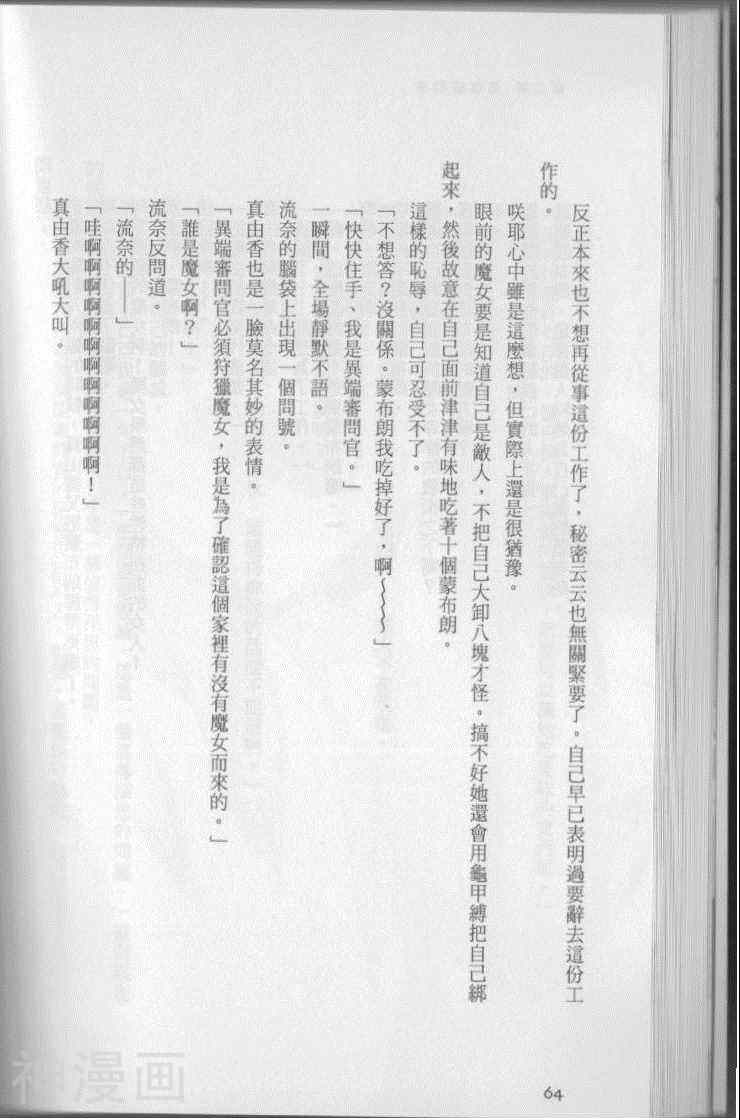 反正本來也不想再從事這份工作了，秘密云云也無關緊要了。自己早已表明過要辭去這份工
作的。
咲耶心中雖是這麼想，但實際上還是很猶豫。
眼前的魔女要是知道自己是敵人，不把自己大卸八塊才怪。搞不好她還會用龜甲縛把自己綁
起來，然後故意在自己面前津津有味地吃著十個蒙布朗。
這樣的恥辱，自己可忍受不了。
「不想答？沒關係。蒙布朗我吃掉好了，啊～～～」
「快快住手、我是異端審問官。」
一瞬間，全場靜默不語。
流奈的腦袋上出現一個問號。
真由香也是一臉莫名其妙的表情。
「異端審問官必須狩獵魔女，我是為了確認這個家裡有沒有魔女而來的。」
「誰是魔女啊？」
流奈反問道。
「流奈的──」
「哇啊啊啊啊啊啊啊啊啊啊啊！」
真由香大吼大叫。
64
神漫画